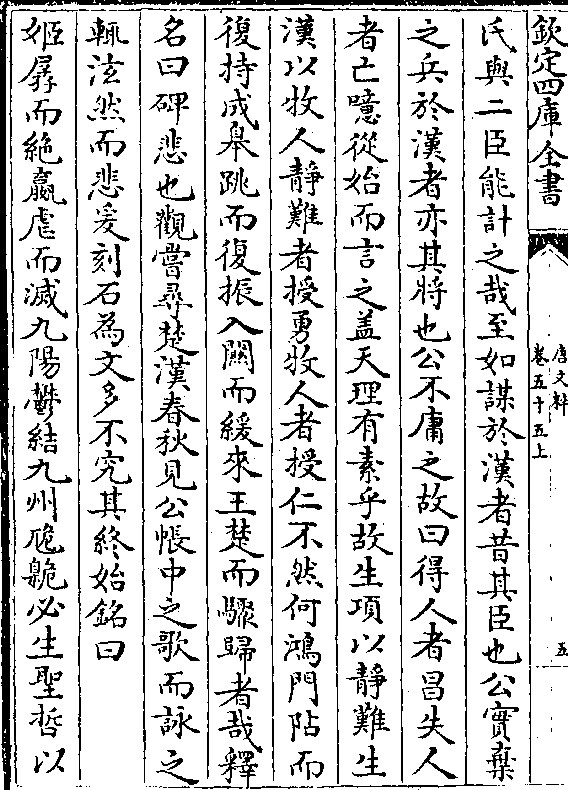 欽定四庫全書
唐文粹
卷五十五上
五
氏與二臣能計之哉至如謀於漢者昔其臣也公實棄
之兵於漢者亦其將也公不庸之故曰得人者昌失人
者亡噫從始而言之蓋天理有素乎故生項以靜難生
漢以牧人靜難者授勇牧人者授仁不然何鴻門阽而
復持成皋跳而復振入關而緩來王楚而驟歸者哉釋
名曰碑悲也觀嘗尋楚漢春秋見公帳中之歌而詠之
輒泫然而悲爰刻石為文多不究其終始銘曰
姬孱而絶嬴虐而滅九陽鬱結九州卼臲必生聖哲以